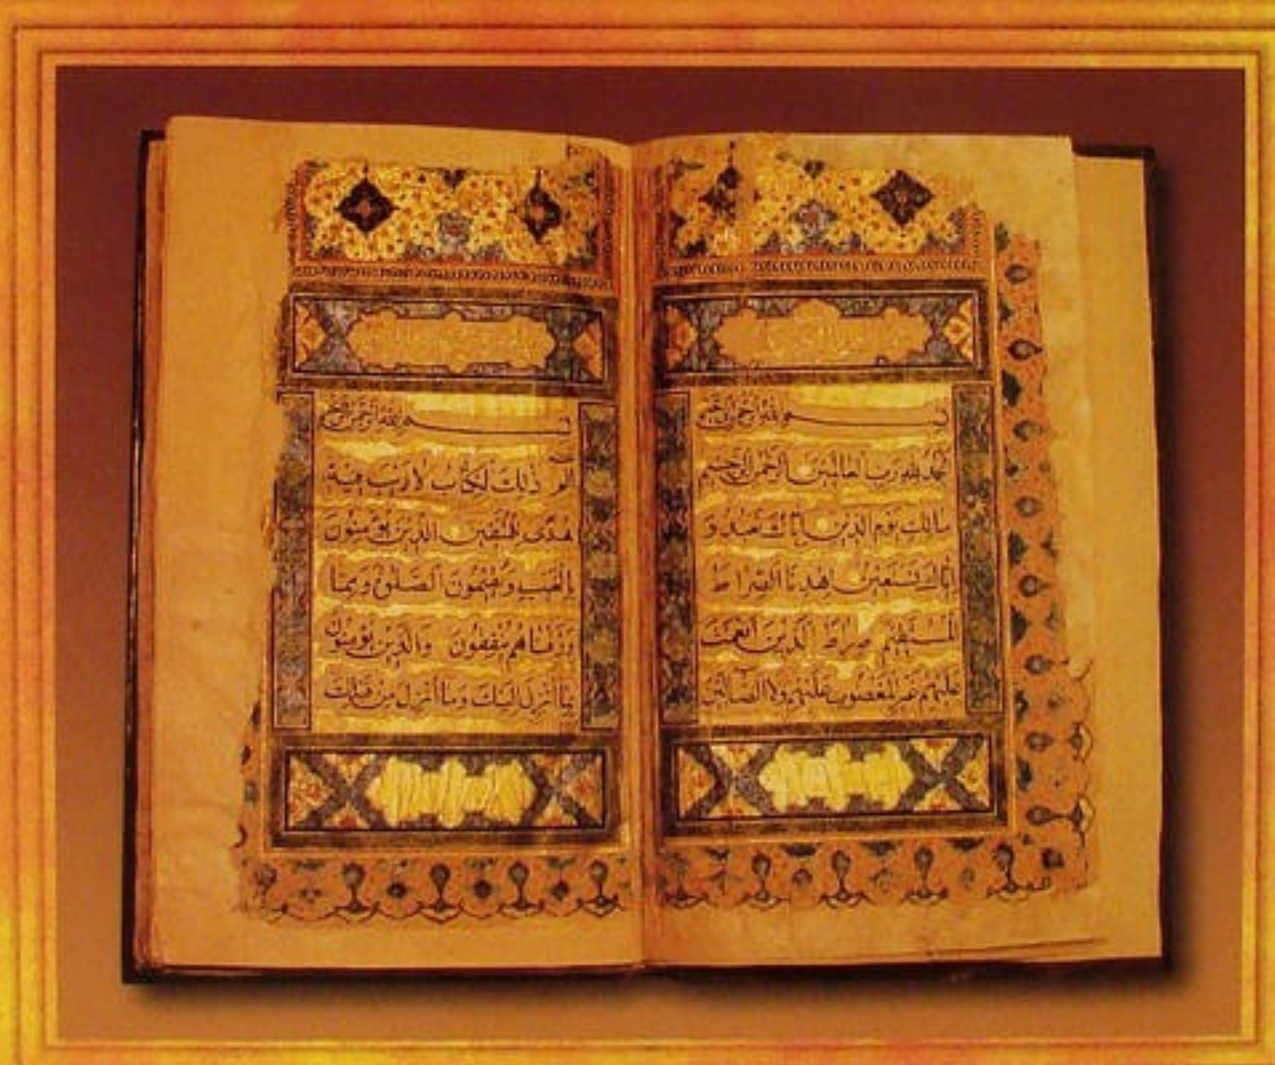 بسم الله الرحمن الرحيم
الحمد لله رب العالمين الرحمن الرحيم
مالك يوم الدين اياك نعبد و
اياك نستعين اهدنا الصراط
المستقيم صراط الذين انعمت
عليهم غير المغضوب عليهم ولا الضالين
بسم الله الرحمن الرحيم
الم ذلك الكتاب لا ريب فيه
هدى للمتقين الذين يؤمنون
بالغيب ويقيمون الصلوة ومما
رزقناهم ينفقون والذين يؤمنون
بما انزل اليك وما انزل من قبلك